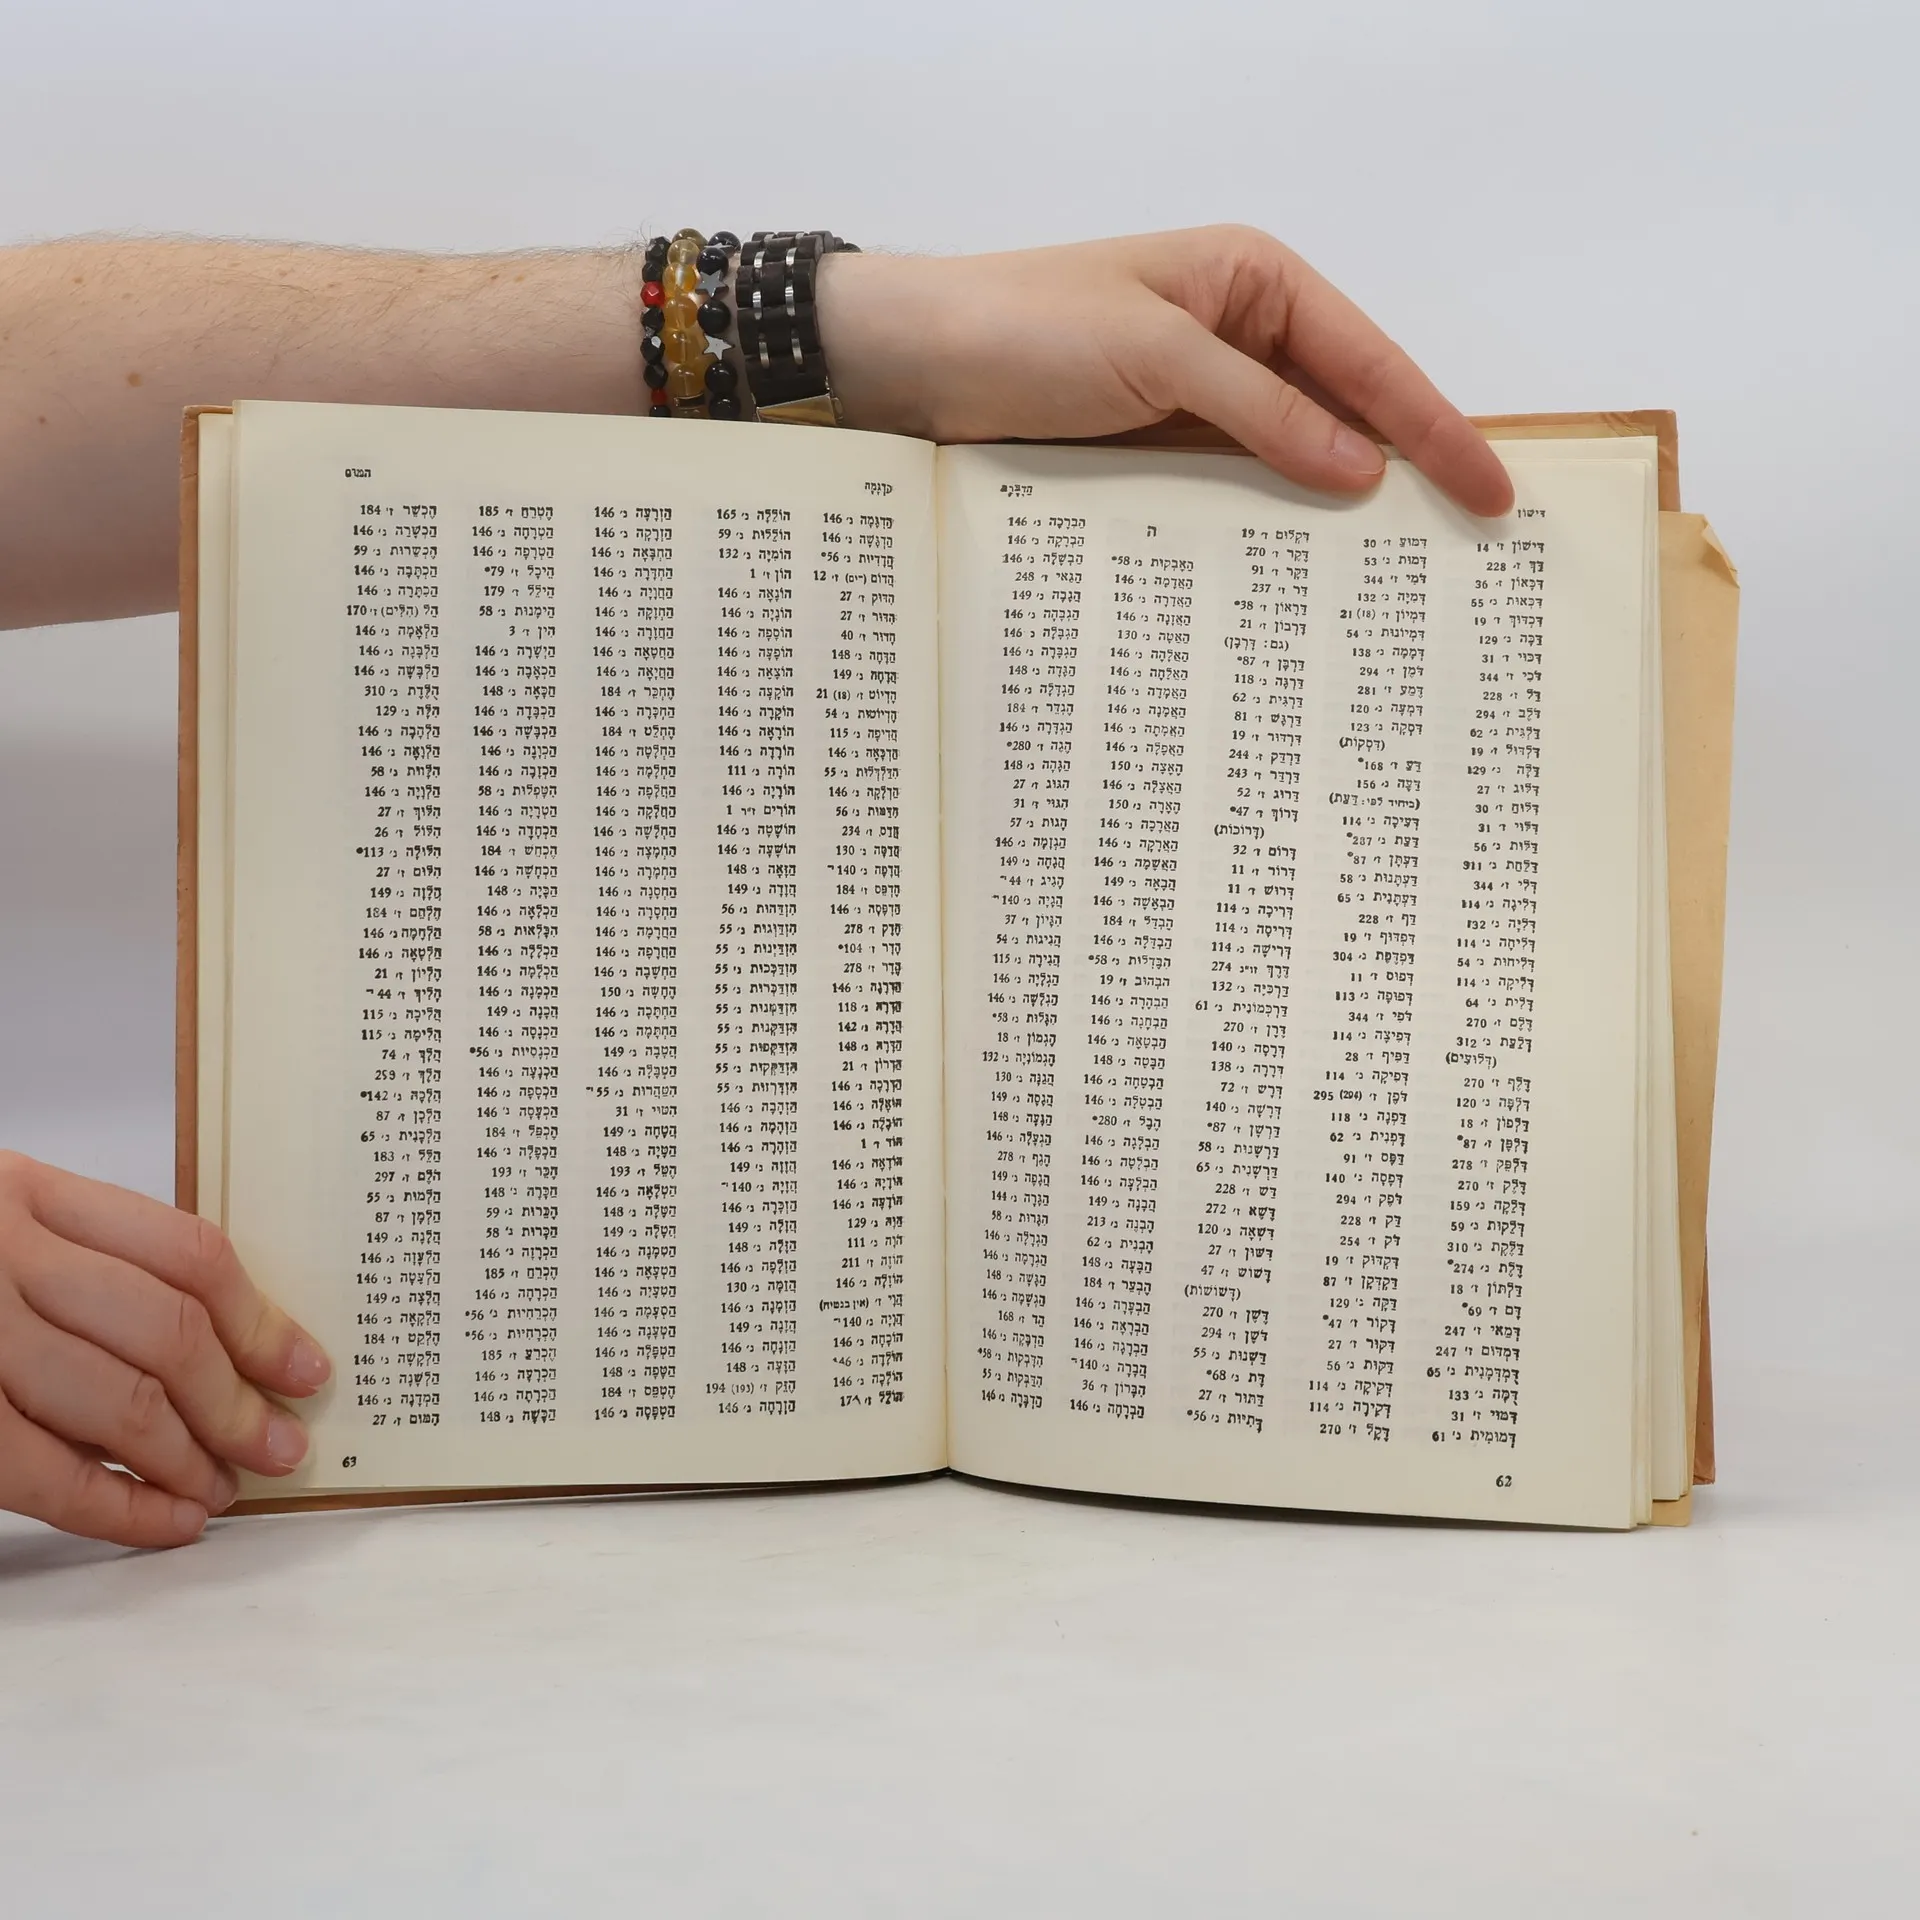 דִּישׁוֹן
הַדְבָּרָה
דִּישׁוֹן ז' 14
דַּךְ ז' 228
דִּכָּאוֹן ז' 36
דַּכָּאוּת נ' 55
דִּכְדּוּךְ ז' 19
דַּכָּה נ' 129
דִּכּוּי ז' 31
דֳּכִי ז' 344
דַּל ז' 228
דֹּלֶב ז' 294
דַּלְגִּית נ' 62
דִּלְדּוּל ז' 19
דַּלָּה נ' 129
דִּלּוּג ז' 27
דִּלּוּחַ ז' 30
דִּלּוּי ז' 31
דַּלּוּת נ' 56
דַּלַּחַת נ' 311
דְּלִי ז' 344
דְּלִיגָה נ' 114
דָּלִיָּה נ' 132
דְּלִיחָה נ' 114
דְּלִיחוּת נ' 54
דְּלִיקָה נ' 114
דַּלִּית נ' 64
דֶּלֶם ז' 270
דְּלַעַת נ' 312
(דְּלוּעִים)
דֶּלֶף ז' 270
דִּלְפָה נ' 120
דַּלְפוֹן ז' 18
דַּלְפָן ז' 87*
דַּלְפֵּק ז' 278
דֶּלֶק ז' 270
דְּלֵקָה נ' 159
דְּלִקוּת נ' 59
דַּלֶּקֶת נ' 310
דֶּלֶת נ' 274*
דַּלְתּוֹן ז' 18
דָּם ז' 69*
דְּמַאי ז' 247
דִּמְדּוּם ז' 247
דֻּמְדְּמָנִית נ' 65
דֻּמָה נ' 133
דִּמּוּי ז' 31
דְּמוּמִית נ' 61
דִּמּוּעַ ז' 30
דְּמוּת נ' 53
דֳּמִי ז' 344
דְּמִיָּה נ' 132
דִּמְיוֹן ז' (18) 21
דִּמְיוֹנוּת נ' 54
דְּמָמָה נ' 138
דֹּמֶן ז' 294
דֶּמַע ז' 281
דִּמְעָה נ' 120
דִּסְקָה נ' 123
(דִּסְקוֹת)
דֵּעַ ז' 168*
דֵּעָה נ' 156
(ביחיד לפי: דַּעַת)
דְּעִיכָה נ' 114
דַּעַת נ' 287*
דַּעְתָּן ז' 87*
דַּעְתָּנוּת נ' 58
דַּעְתָּנִית נ' 65
דַּף ז' 228
דִּפְדּוּף ז' 19
דַּפְדֶּפֶת נ' 304
דְּפוּס ז' 11
דְּפוּפָה נ' 113
דֳּפִי ז' 344
דְּפִיצָה נ' 114
דַּפִּיף ז' 28
דְּפִיקָה נ' 114
דֹּפֶן ז' (294) 295
דַּפְנָה נ' 118
דַּפְנִית נ' 62
דַּפָּס ז' 91
דְּפָסָה נ' 140
דֹּפֶק ז' 294
דַּק ז' 228
דֹּק ז' 254
דִּקְדּוּק ז' 19
דַּקְדְּקָן ז' 87
דַּקָּה נ' 129
דִּקּוֹר ז' 47*
דִּקּוּר ז' 27
דַּקּוּת נ' 56
דְּקִיקָה נ' 114
דְּקִירָה נ' 114
דֶּקֶל ז' 270
דִּקְלוּם ז' 19
דֶּקֶר ז' 270
דַּקָּר ז' 91
דַּר ז' 237
דֵּרָאוֹן ז' 38*
דָּרְבוֹן ז' 21
(גם: דָּרְבָן)
דַּרְבָּן ז' 87*
דַּרְגָּה נ' 118
דַּרְגִּית נ' 62
דַּרְגָּשׁ ז' 81
דִּרְדּוּר ז' 19
דַּרְדַּק ז' 244
דַּרְדַּר ז' 243
דֵּרוּג ז' 52
דָּרוֹךְ ז' 47*
(דָּרוֹכוֹת)
דָּרוֹם ז' 32
דְּרוֹר ז' 11
דְּרוּשׁ ז' 11
דְּרִיכָה נ' 114
דְּרִיסָה נ' 114
דְּרִישָׁה נ' 114
דֶּרֶךְ זו"נ 274
דַּרְכִּיָּה נ' 132
דַּרְכְּמוֹנִית נ' 61
דֶּרֶן ז' 270
דְּרָסָה נ' 140
דְּרָרָה נ' 138
דְּרָשׁ ז' 72
דְּרָשָׁה נ' 140
דַּרְשָׁן ז' 87*
דַּרְשָׁנוּת נ' 58
דַּרְשָׁנִית נ' 65
דַּשׁ ז' 228
דֶּשֶׁא ז' 272
דִּשְׁאָה נ' 120
דִּשּׁוּן ז' 27
דָּשׁוֹשׁ ז' 47
(דָּשׁוֹשׁוֹת)
דֶּשֶׁן ז' 270
דֹּשֶׁן ז' 294
דַּשְּׁנוּת נ' 55
דָּת נ' 68*
דִּתּוּר ז' 27
דָּתִיּוּת נ' 56*
ה
הֵאָבְקוּת נ' 58*
הַאֲדָמָה נ' 146
הַאְדָּרָה נ' 136
הַאֲזָנָה נ' 146
הָאָטָה נ' 130
הַאֲלָהָה נ' 146
הַאֲלָחָה נ' 146
הַאֲמָדָה נ' 146
הַאֲמָנָה נ' 146
הַאֲמָתָה נ' 146
הַאֲפָלָה נ' 146
הָאָצָה נ' 150
הַאֲצָלָה נ' 146
הָאָרָה נ' 150
הַאֲרָכָה נ' 146
הַאֲרָקָה נ' 146
הַאֲשָׁמָה נ' 146
הֲבָאָה נ' 149
הַבְאָשָׁה נ' 146
הֶבְדֵּל ז' 184
הַבְדָּלָה נ' 146
הִבָּדְלוּת נ' 58*
הִבְהוּב ז' 19
הַבְהָרָה נ' 146
הַבְחָנָה נ' 146
הַבְטָאָה נ' 146
הַבָּטָה נ' 148
הַבְטָחָה נ' 146
הַבְטָלָה נ' 146
הֶבֶל ז' 280*
הַבְלָגָה נ' 146
הַבְלָטָה נ' 146
הַבְלָעָה נ' 146
הֲבָנָה נ' 149
הָבְנֶה נ' 213
הָבְנִית נ' 62
הַבָּעָה נ' 148
הֶבְעֵר ז' 184
הַבְעָרָה נ' 146
הַבְרָאָה נ' 146
הַבְרָגָה נ' 146
הֲבָרָה נ' 140
הִבָּרוֹן ז' 36
הַבְרָחָה נ' 146
הַבְרָכָה נ' 146
הַבְרָקָה נ' 146
הַבְשָׁלָה נ' 146
הַגַּאי ז' 248
הֲגָבָה נ' 149
הַגְבָּהָה נ' 146
הַגְבָּלָה נ' 146
הַגְבָּרָה נ' 146
הַגָּדָה נ' 148
הַגְדָּלָה נ' 146
הֶגְדֵּר ז' 184
הַגְדָּרָה נ' 146
הֶגֶה ז' 280*
הַגָּהָה נ' 148
הִגּוּג ז' 27
הִגּוּי ז' 31
הָגוּת נ' 57
הַגְזָמָה נ' 146
הֲגָחָה נ' 149
הָגִיג ז' 44
הֲגָיָה נ' 140
הִגָּיוֹן ז' 37
הֲגִינוּת נ' 54
הֲגִירָה נ' 115
הַגְלָיָה נ' 146
הַגְלָשָׁה נ' 146
הִגָּלוּת נ' 58*
הֶגְמוֹן ז' 18
הֶגְמוֹנְיָה נ' 132
הֲגַנָּה נ' 130
הֲגָסָה נ' 149
הַגָּעָה נ' 148
הַגְעָלָה נ' 146
הֶגֶף ז' 278
הֲגָפָה נ' 149
הֲגִרָּה נ' 144
הִגָּרוּת נ' 58
הַגְרָלָה נ' 146
הַגְרָסָה נ' 146
הַגָּשָׁה נ' 148
הַגְשָׁמָה נ' 146
הֵד ז' 168
הַדְבָּקָה נ' 146
הִדָּבְקוּת נ' 58*
הִדַּבְּרוּת נ' 55
הַדְבָּרָה נ' 146
62
הַדְגָּמָה
הִמּוּם
הַדְגָּמָה נ' 146
הַדְגָּשָׁה נ' 146
הֲדָדִיּוּת נ' 56*
הֲדוֹם (-ים) ז' 12
הִדּוּק ז' 27
הִדּוּר ז' 27
הָדוּר ז' 40
הַדָּחָה נ' 148
הֲדָחָה נ' 149
הֶדְיוֹט ז' (18) 21
הֶדְיוֹטוּת נ' 54
הֲדִיפָה נ' 115
הַדְכָּאָה נ' 146
הִדַּלְדְּלוּת נ' 55
הַדְלָקָה נ' 146
הִדַּמּוּת נ' 56
הֲדַס ז' 234
הֲדַסָּה נ' 130
הֲדָפָה נ' 140
הֶדְפֵּס ז' 184
הַדְפָּסָה נ' 146
הֶדֶק ז' 278
הָדָר ז' 104*
הֶדֶר ז' 278
הַדְרָגָה נ' 146
הַדְרָה נ' 118
הֲדָרָה נ' 142
הַדָּרָה נ' 148
הִדָּרוֹן ז' 21
הַדְרָכָה נ' 146
הוֹאָלָה נ' 146
הוֹבָלָה נ' 146
הוֹד ז' 1
הוֹדָאָה נ' 146
הוֹדָיָה נ' 146
הוֹדָעָה נ' 146
הַוָּה נ' 129
הֹוָה נ' 111
הוֹזֶה ז' 211
הוֹזָלָה נ' 146
הֱוִי ז' (אין בנטיה)
הֲוָיָה נ' 140
הוֹכָחָה נ' 146
הוֹלָדָה נ' 146
הוֹלָכָה נ' 146
הוֹלֵל ז' 17
הוֹלֵלָה נ' 165
הוֹלֵלוּת נ' 59
הוֹמִיָּה נ' 132
הוֹן ז' 1
הוֹנָאָה נ' 146
הוֹנָיָה נ' 146
הוֹסָפָה נ' 146
הוֹפָעָה נ' 146
הוֹצָאָה נ' 146
הוֹקָעָה נ' 146
הוֹקָרָה נ' 146
הוֹרָאָה נ' 146
הוֹרָדָה נ' 146
הוֹרָה נ' 111
הוֹרָיָה נ' 146
הוֹרִים ז"ר 1
הוֹשָׁטָה נ' 146
הוֹשָׁעָה נ' 146
הַזָּאָה נ' 148
הֲזָדָה נ' 149
הִזְדַּהוּת נ' 56
הִזְדַּוְּגוּת נ' 55
הִזְדַּיְּנוּת נ' 55
הִזְדַּכְּכוּת נ' 55
הִזְדַּכְּרוּת נ' 55
הִזְדַּמְּנוּת נ' 55
הִזְדַּקְּנוּת נ' 55
הִזְדַּקְּפוּת נ' 55
הִזְדַּקְּקוּת נ' 55
הִזְדָּרְזוּת נ' 55
הַזְהָבָה נ' 146
הַזְהָמָה נ' 146
הַזְהָרָה נ' 146
הֲזָזָה נ' 149
הֲזָיָה נ' 140
הַזְכָּרָה נ' 146
הֲזָלָה נ' 149
הַזָּלָה נ' 148
הַזְלָפָה נ' 146
הֲזַמָּה נ' 130
הַזְמָנָה נ' 146
הֲזָנָה נ' 149
הַזְנָחָה נ' 146
הַזָּעָה נ' 148
הֶזֵּק ז' (193) 194
הַזְרָחָה נ' 146
הַזְרָעָה נ' 146
הַזְרָקָה נ' 146
הַחְבָּאָה נ' 146
הַחְדָּרָה נ' 146
הַחֲוָיָה נ' 146
הַחְזָקָה נ' 146
הַחְזָרָה נ' 146
הַחְטָאָה נ' 146
הַחְיָאָה נ' 146
הֶחְכֵּר ז' 184
הַחְכָּרָה נ' 146
הֶחְלֵט ז' 184
הַחְלָטָה נ' 146
הַחְלָמָה נ' 146
הַחְלָפָה נ' 146
הַחְלָקָה נ' 146
הַחְלָשָׁה נ' 146
הַחְמָצָה נ' 146
הַחְמָרָה נ' 146
הַחְסָנָה נ' 146
הַחְסָרָה נ' 146
הַחְרָמָה נ' 146
הַחְרָפָה נ' 146
הַחְשָׁבָה נ' 146
הֶחָשָׁה נ' 150
הַחְתָּכָה נ' 146
הַחְתָּמָה נ' 146
הֲטָבָה נ' 149
הַטְבָּלָה נ' 146
הִטַּהֲרוּת נ' 55
הִטּוּי ז' 31
הֲטָחָה נ' 149
הַטָּיָה נ' 148
הֶטֵּל ז' 193
הַטְלָאָה נ' 146
הַטָּלָה נ' 148
הֲטָלָה נ' 149
הַטְמָנָה נ' 146
הַטְעָאָה נ' 146
הַטְעָיָה נ' 146
הַטְעָמָה נ' 146
הַטְעָנָה נ' 146
הַטְפָּלָה נ' 146
הַטָּפָה נ' 148
הֶטְפֵּס ז' 184
הַטְפָּסָה נ' 146
הֶטְרֵחַ ז' 185
הַטְרָחָה נ' 146
הַטְרָפָה נ' 146
הֵיכָל ז' 79*
הֵילֵל ז' 179
הֵימָנוּת נ' 58
הִין ז' 3
הַיְשָׁרָה נ' 146
הַכְאָבָה נ' 146
הַכָּאָה נ' 148
הַכְבָּדָה נ' 146
הַכְבָּשָׁה נ' 146
הַכְוָנָה נ' 146
הַכְזָבָה נ' 146
הִטָּפְלוּת נ' 58
הַטְרָיָה נ' 146
הַכְחָדָה נ' 146
הֶכְחֵשׁ ז' 184
הַכְחָשָׁה נ' 146
הַכָּיָה נ' 148
הַכְלָאָה נ' 146
הִכָּלְאוּת נ' 58
הַכְלָלָה נ' 146
הַכְלָמָה נ' 146
הַכְמָנָה נ' 146
הֲכָנָה נ' 149
הַכְנָסָה נ' 146
הַכְנָסִיּוּת נ' 56*
הַכְנָעָה נ' 146
הַכְסָפָה נ' 146
הַכְעָסָה נ' 146
הֶכְפֵּל ז' 184
הַכְפָּלָה נ' 146
הֶכֵּר ז' 193
הַכָּרָה נ' 148
הַכָּרוּת נ' 59
הִכָּרוּת נ' 58
הַכְרָזָה נ' 146
הֶכְרֵחַ ז' 185
הַכְרָחָה נ' 146
הֶכְרֵחִיּוּת נ' 56*
הֶכְרָחִיּוּת נ' 56*
הֶכְרֵעַ ז' 185
הַכְרָעָה נ' 146
הַכְרָתָה נ' 146
הַכָּשָׁה נ' 148
הֶכְשֵׁר ז' 184
הַכְשָׁרָה נ' 146
הֶכְשֵׁרוּת נ' 59
הַכְתָּבָה נ' 146
הַכְתָּרָה נ' 146
הַל (הִלִּים) ז' 170
הַלְאָמָה נ' 146
הַלְבָּנָה נ' 146
הַלְבָּשָׁה נ' 146
הֻלֶּדֶת נ' 310
הִלָּה נ' 129
הַלְהָבָה נ' 146
הַלְוָאָה נ' 146
הִלָּווּת נ' 58
הַלְוָיָה נ' 146
הִלּוּךְ ז' 27
הִלּוּל ז' 26
הִלּוּלָה נ' 113*
הִלּוּם ז' 27
הֲלָזָה נ' 149
הֶלְחֵם ז' 184
הַלְחָמָה נ' 146
הַלְטָאָה נ' 146
הֶלְיוֹן ז' 21
הָלִיךְ ז' 44
הֲלִיכָה נ' 115
הֲלִימָה נ' 115
הֲלָךְ ז' 74
הֵלֶךְ ז' 299
הֲלָכָה נ' 142*
הַלְכָן ז' 87
הַלְכָנִית נ' 65
הַלֵּל ז' 183
הֹלֶם ז' 297
הַלְּמוּת נ' 55
הַלְמָן ז' 87
הֲלָנָה נ' 149
הַלְעָזָה נ' 146
הַלְעָטָה נ' 146
הֲלָצָה נ' 149
הַלְקָאָה נ' 146
הֶלְקֵט ז' 184
הַלְקָשָׁה נ' 146
הַלְשָׁנָה נ' 146
הַמְדָּנָה נ' 146
הִמּוּם ז' 27
63